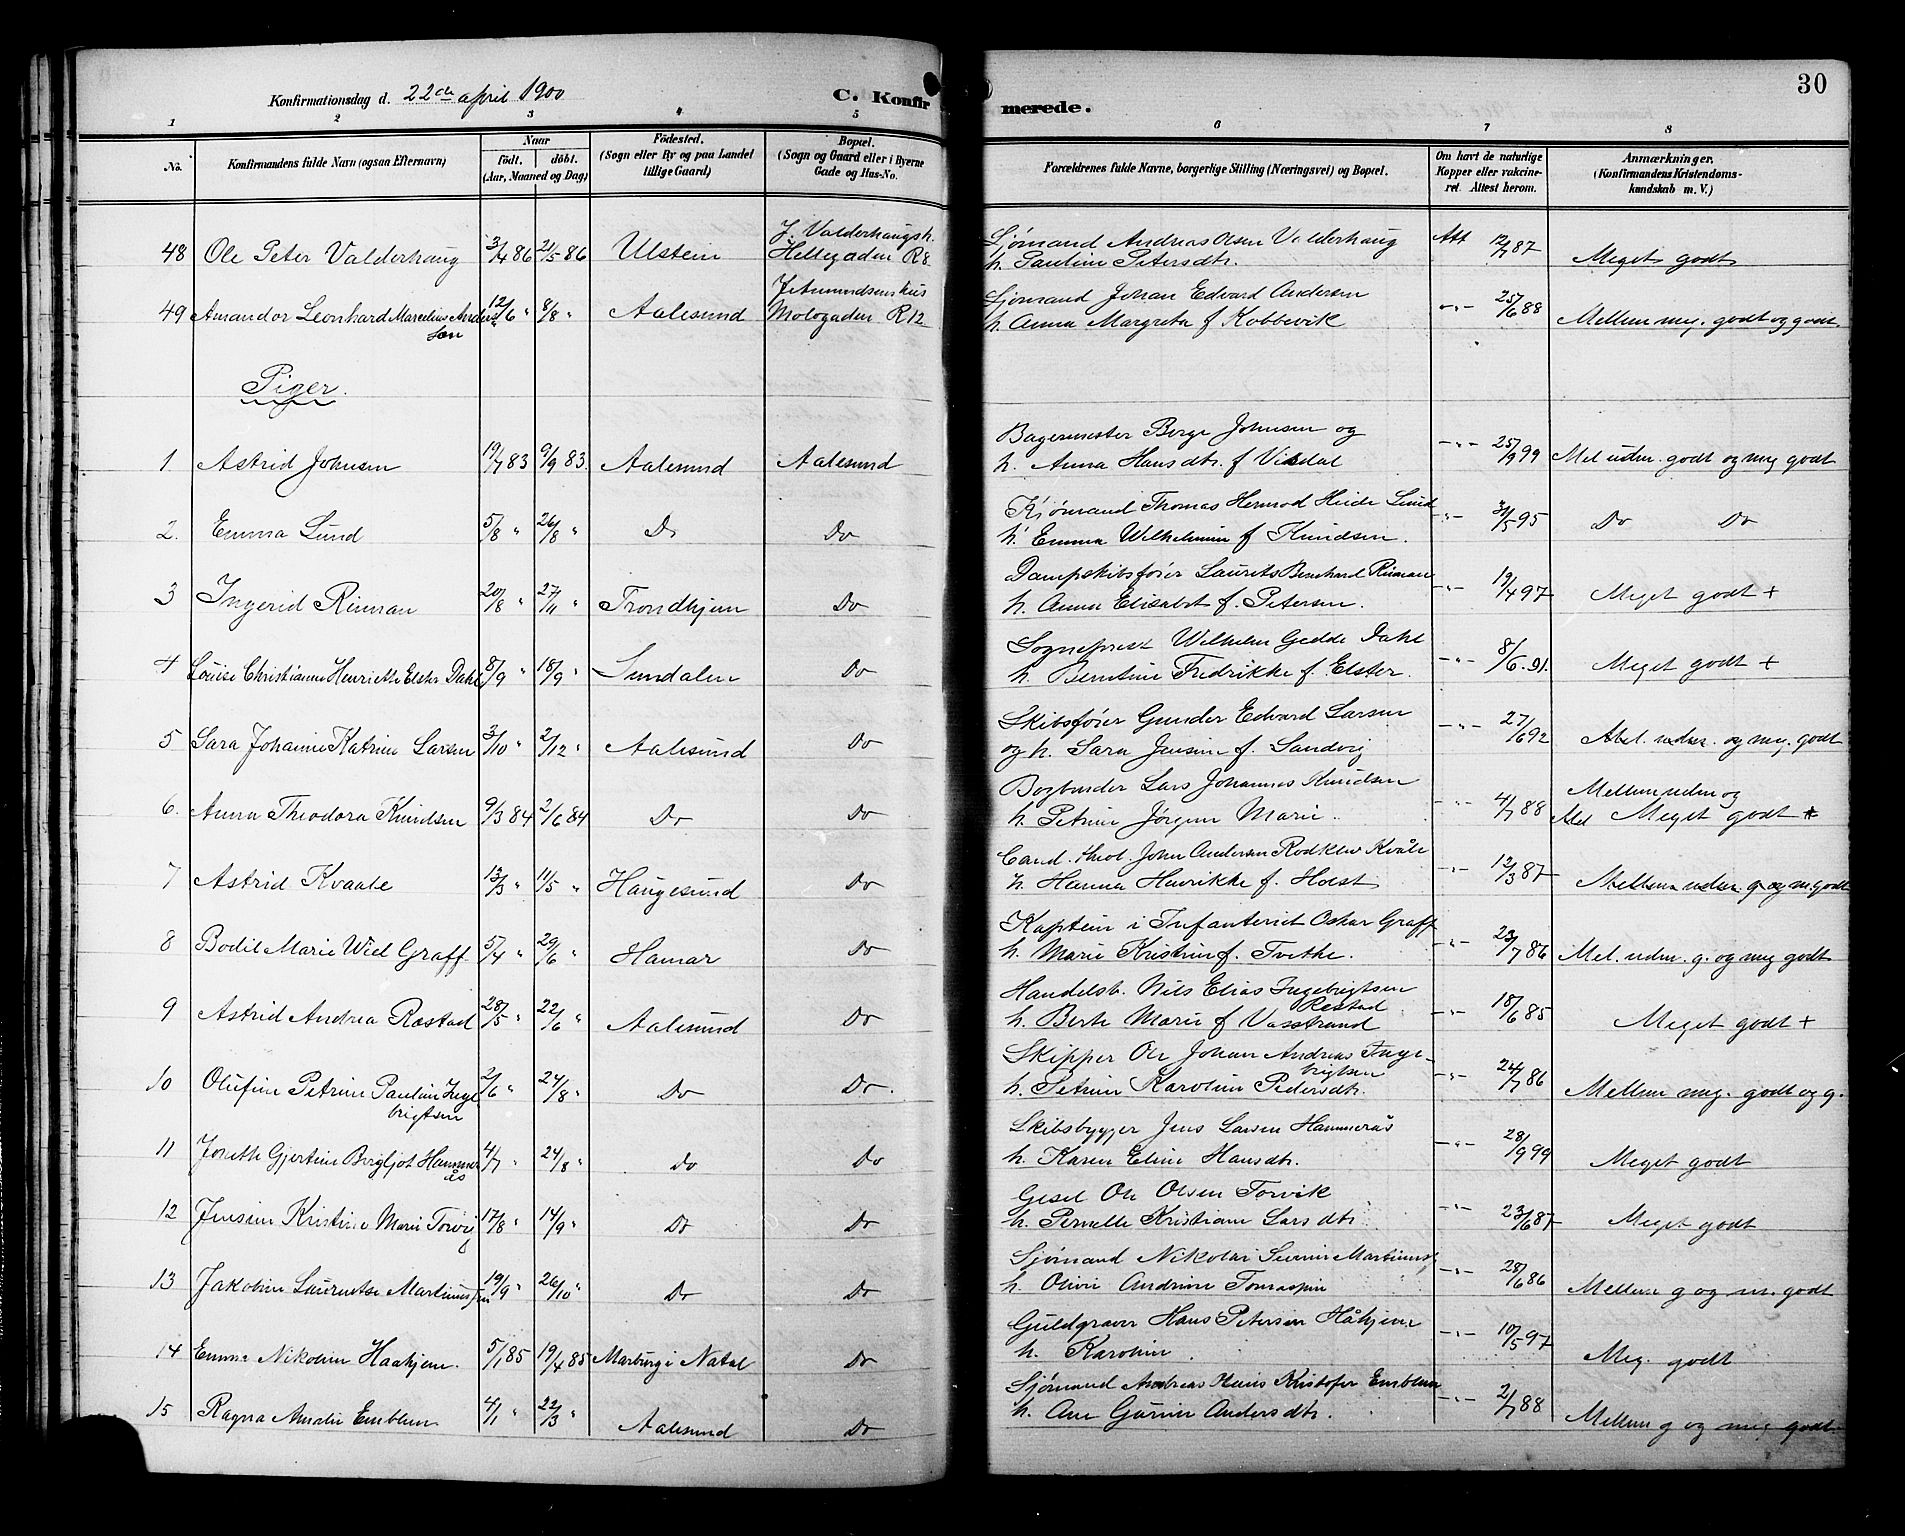 30
Konfirmationsdag d. 22de april 1900
C. Konfirmerede.
1 2 3 4 5 6 7 8
No.
Konfirmandens fulde Navn (ogsaa Efternavn)
Naar
født. døbt.
(Aar, Maaned og Dag)
Fødested.
(Sogn eller By og paa Landet
tillige Gaard)
Bopæl.
(Sogn og Gaard eller i Byerne
Gade og Hus-No.
Forældrenes fulde Navne, borgerlige Stilling (Næringsvei) og Bopæl.
Om havt de naturlige
Kopper eller vakcine-
ret. Attest herom.
Anmærkninger.
(Konfirmandens Kristendoms-
kundskab m. V.)
48 Ole Peter Valderhaug 3/4 86 21/5 86 Ulstein J. Valderhaugsh.
Hellegaden R8.
Sjømand Andreas Olsen Valderhaug
h. Pauline Petersdtr.
Att 12/7 87 Meget godt
49 Amandor Leonhard Marcelius Andersen 12/6 " 8/8 " Aalesund
Mologaden R12.
Sjømand Johan Edvard Andersen
h. Anna Margreta f Kobbevik
-"- 25/6 88 Mellem meg. godt og godt.
Piger.
1. Astrid Johnsen 19/7 83 9/9 83. Aalesund Aalesund
Bagermester Berge Johnsen og
h. Anna Hansdtr. f Visdal
-"- 25/9 99 Mel udm. godt og meg godt
2. Emma Lund 5/8 " 26/8 " Do Do
Thomas Hermod Heide Lund
h. Emma Wilhelmine f Knudsen.
-"- 31/5 95 Do Do
3 Ingerid Riiman 20/8 " 27/11 " Trondhjem Do
Dampskibsfører Laurits Bernhard Riiman
h. Anna Elisabet f. Petersen.
-"- 19/4 97 Meget godt +
4 Louise Christianne Henriette Elster Dahl 8/9 " 18/9 " Sundalen Do
Sogneprest Wilhelm Gedde Dahl
h. Berntine Fredrikke f. Elster.
-"- 8/6. 91. Meget godt +
5 Sara Johanne Katrine Larsen 3/10 " 2/12 " Aalesund Do
Skibsfører Gunder Edvard Larsen
og h. Sara Jensine f. Sandvig
-"- 27/6 92 Mel. udm. og meg. godt
6. Anna Theodora Knudsen 9/3 84 2/6 84 Do Do
Bogbinder Lars Johannes Knudsen
h. Petrine Jørgine Marie.
-"- 4/7 88 Mellem udm og
Mel Meget godt +
7 Astrid Kvaale 13/3 " 11/5 " Haugesund Do
Cand. theol. John Andersen Rodklev Kvåle
h. Hanna Henrikke f. Holst
-"- 12/3 87 Mellem udm. g. og m. godt
8 Bodil Marie Wiel Graff 5/4 " 29/6 " Hamar Do
Kaptein i Infanteriet Oskar Graff
h. Marie Kristine f. Tvethe.
-"- 23/7 86 Mel. udm. g. og meg godt
9 Astrid Andrea Røstad 28/5 " 22/6 " Aalesund Do
Handelsb. Nils Elias Ingebrigtsen
Røstad
h. Berte Marie f Vasstrand
-"- 18/6 85 Meget godt +
10 Olufine Petrine Pauline Inge-
brigtsen 2/6 " 24/8 " Do Do.
Skipper Ole Johan Andreas Inge-
brigtsen
h. Petrine Karoline Pedersdtr.
-"- 24/7 86 Mellem meg. godt og g.
11 Joneth Gjertine Bergljot Hammer
ås 4/7 " 24/8 " Do Do
Skibsbygger Jens Larsen Hammerås
h. Karen Eline Hansdtr.
-"- 28/9 99 Meget godt
12 Jensine Kristine Marie Torvig 17/8 " 14/9 " Do Do
Gesel Ole Olsen Torvik
h. Pernelle Kristiane Larsdtr.
-"- 23/6 87 Meget godt
13 Jakobine Laurentse Martinussen 19/9 " 26/10 " Do Do
Sjømand Nikolai Severin Martinus.
h. Olivie Andrine
-"- 28/6 86 Mellem g og m. godt
14 Emma Nikoline Haahjem. 5/1 85 19/4 85 Marburg i Natal Do
Guldgraver Hans Petersen Håhjem
h. Karoline.
-"- 10/5 97 Meg. godt
15 Ragna Amalie Emblem 4/1 " 22/3 " Aalesund Do
Sjømand Andreas Kristofer Emblem
h. Ane Gurine Andersdtr.
-"- 2/7 88 Mellem g og meg godt.